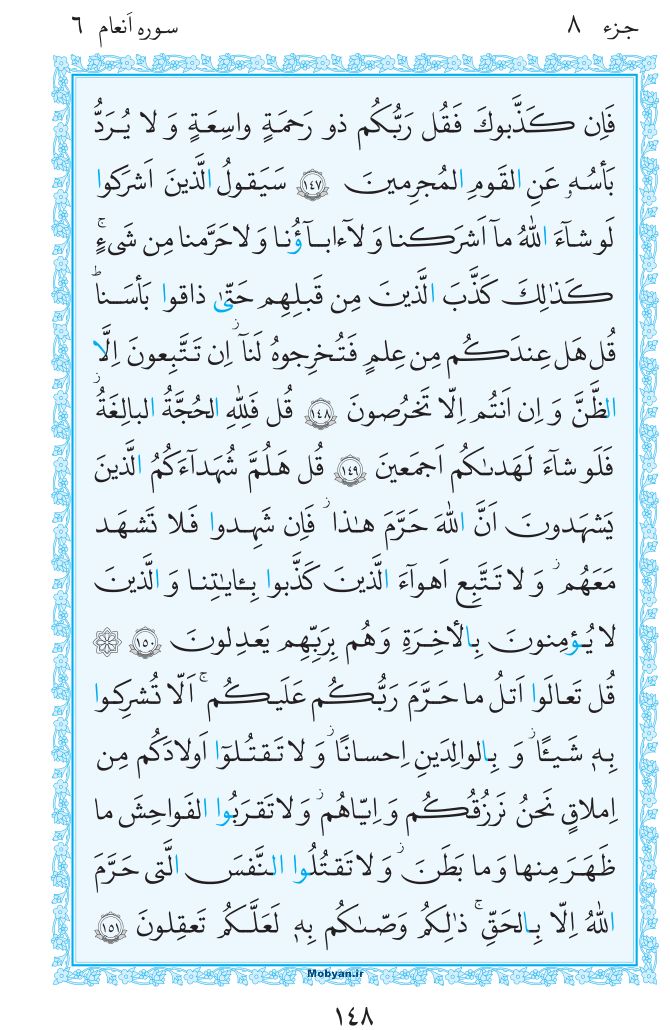 جزء ٨
سوره اَنعام ٦
فَاِن كَذَّبوكَ فَقُل رَبُّكُم ذو رَحمَةٍ واسِعَةٍ وَ لا يُرَدُّ
بَأسُهٗ عَنِ القَومِ المُجرِمينَ ﴿١٤٧﴾ سَيَقولُ الَّذينَ اَشرَكوا
لَو شاۤءَ اللّٰهُ ماۤ اَشرَكنا وَ لاۤ ءاباۤؤُنا وَ لا حَرَّمنا مِن شَیءٍ ۚ
كَذٰلِكَ كَذَّبَ الَّذينَ مِن قَبلِهِم حَتّیٰ ذاقوا بَأسَنا ؕ
قُل هَل عِندَكُم مِن عِلمٍ فَتُخرِجوهُ لَناۤ ۖ اِن تَتَّبِعونَ اِلَّا
الظَّنَّ وَ اِن اَنتُم اِلّا تَخرُصونَ ﴿١٤٨﴾ قُل فَلِلّٰهِ الحُجَّةُ البالِغَةُ ۖ
فَلَو شاۤءَ لَهَدىٰكُم اَجمَعينَ ﴿١٤٩﴾ قُل هَلُمَّ شُهَداۤءَكُمُ الَّذينَ
يَشهَدونَ اَنَّ اللّٰهَ حَرَّمَ هٰذا ۖ فَاِن شَهِدوا فَلا تَشهَد
مَعَهُم ۚ وَ لا تَتَّبِع اَهواۤءَ الَّذينَ كَذَّبوا بِـٔايٰتِنا وَ الَّذينَ
لا يُؤمِنونَ بِالأخِرَةِ وَ هُم بِرَبِّهِم يَعدِلونَ ﴿١٥٠﴾ ۞
قُل تَعالَوا اَتلُ ما حَرَّمَ رَبُّكُم عَلَيكُم ۚ اَلّا تُشرِكوا
بِهٖ شَيـًٔا ۖ وَ بِالوالِدَينِ اِحسانًا ۖ وَ لا تَقتُلوۤا اَولادَكُم مِن
اِملاقٍ نَحنُ نَرزُقُكُم وَ اِيّاهُم ۖ وَ لا تَقرَبُوا الفَواحِشَ ما
ظَهَرَ مِنها وَ ما بَطَنَ ۖ وَ لا تَقتُلُوا النَّفسَ الَّتی حَرَّمَ
اللّٰهُ اِلّا بِالحَقِّ ۚ ذٰلِكُم وَصّىٰكُم بِهٖ لَعَلَّكُم تَعقِلونَ ﴿١٥١﴾
Mobyan.ir
١٤٨